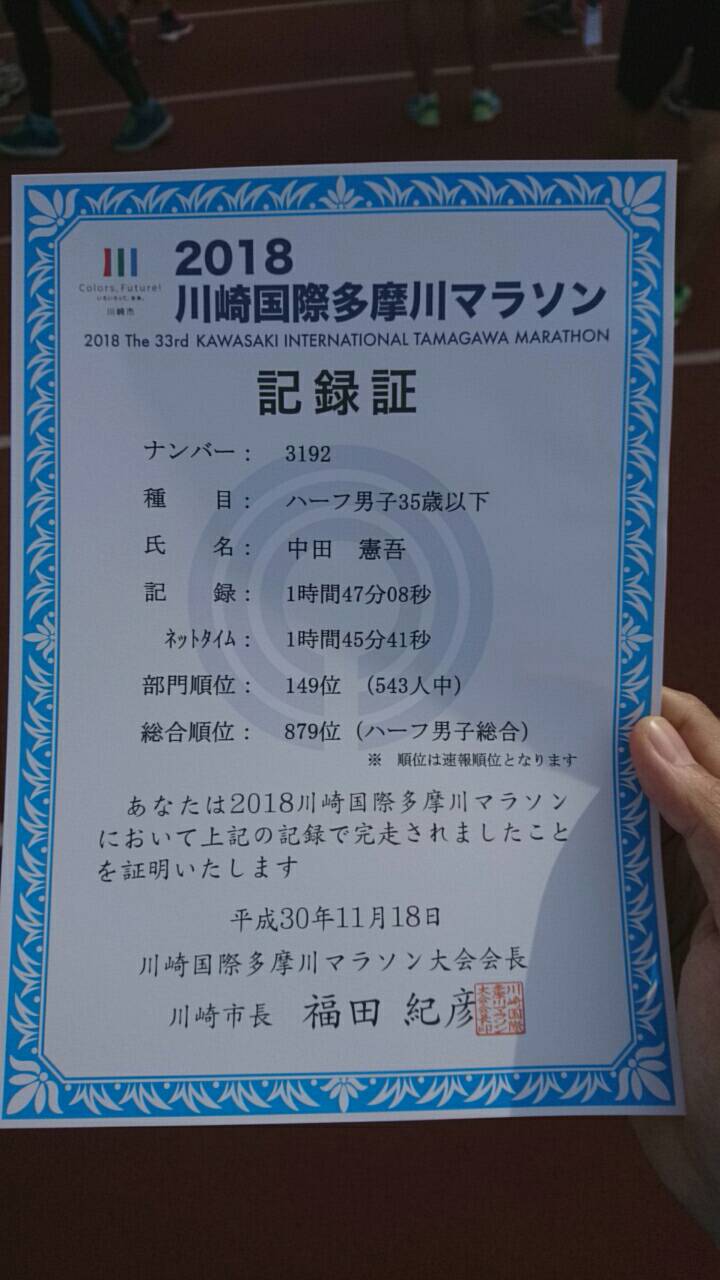 2018
Colors, Future!
いろいろって、未来。
川崎市
川崎国際多摩川マラソン
2018 The 33rd KAWASAKI INTERNATIONAL TAMAGAWA MARATHON
記録証
ナンバー： 3192
種　目： ハーフ男子35歳以下
氏　名： 中田　憲吾
記　録： 1時間47分08秒
ﾈｯﾄﾀｲﾑ： 1時間45分41秒
部門順位： 149位 （543人中）
総合順位： 879位（ハーフ男子総合）
※　順位は速報順位となります
あなたは2018川崎国際多摩川マラソン
において上記の記録で完走されましたこと
を証明いたします
平成30年11月18日
川崎国際多摩川マラソン大会会長
川崎市長　福田 紀彦
川崎国際
多摩川マラソン
大会会長印